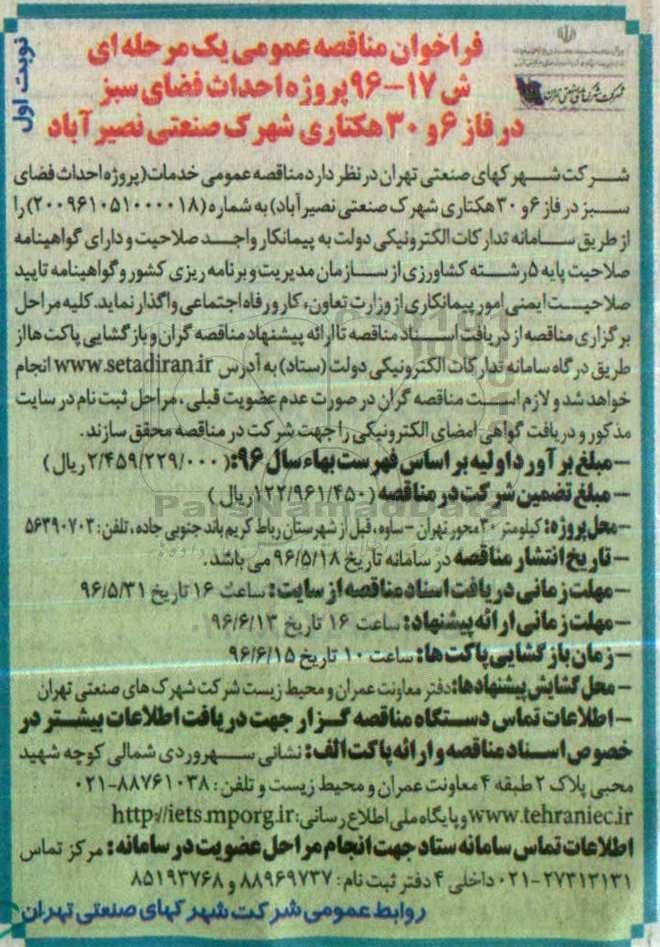 نوبت اول
فراخوان مناقصه عمومی یک مرحله ای
ش ۱۷-۹۶ پروژه احداث فضای سبز
در فاز ۶ و ۳۰ هکتاری شهرک صنعتی نصیرآباد
شرکت شهرکهای صنعتی تهران
شرکت شهرکهای صنعتی تهران در نظر دارد مناقصه عمومی خدمات (پروژه احداث فضای
سبز در فاز ۶ و ۳۰ هکتاری شهرک صنعتی نصیرآباد) به شماره (۲۰۰۹۶۱۰۵۱۰۰۰۰۱۸) را
از طریق سامانه تدارکات الکترونیکی دولت به پیمانکار واجد صلاحیت و دارای گواهینامه
صلاحیت پایه ۵ رشته کشاورزی از سازمان مدیریت و برنامه ریزی کشور و گواهینامه تایید
صلاحیت ایمنی امور پیمانکاری از وزارت تعاون، کار و رفاه اجتماعی واگذار نماید. کلیه مراحل
برگزاری مناقصه از دریافت اسناد مناقصه تا ارائه پیشنهاد مناقصه گران و بازگشایی پاکت ها از
طریق درگاه سامانه تدارکات الکترونیکی دولت (ستاد) به آدرس www.setadiran.ir انجام
خواهد شد و لازم است مناقصه گران در صورت عدم عضویت قبلی، مراحل ثبت نام در سایت
مذکور و دریافت گواهی امضای الکترونیکی را جهت شرکت در مناقصه محقق سازند.
- مبلغ برآورد اولیه بر اساس فهرست بهاء سال ۹۶: (۲/۴۵۹/۲۲۹/۰۰۰ ریال)
- مبلغ تضمین شرکت در مناقصه (۱۲۲/۹۶۱/۴۵۰ ریال)
- محل پروژه: کیلومتر ۳۰ محور تهران - ساوه، قبل از شهرستان رباط کریم باند جنوبی جاده، تلفن: ۵۶۳۹۰۷۰۳
- تاریخ انتشار مناقصه در سامانه تاریخ ۹۶/۵/۱۸ می باشد.
- مهلت زمانی دریافت اسناد مناقصه از سایت: ساعت ۱۶ تاریخ ۹۶/۵/۳۱
- مهلت زمانی ارائه پیشنهاد: ساعت ۱۶ تاریخ ۹۶/۶/۱۳
- زمان بازگشایی پاکت ها: ساعت ۱۰ تاریخ ۹۶/۶/۱۵
- محل گشایش پیشنهادها: دفتر معاونت عمران و محیط زیست شرکت شهرک های صنعتی تهران
- اطلاعات تماس دستگاه مناقصه گزار جهت دریافت اطلاعات بیشتر در
خصوص اسناد مناقصه و ارائه پاکت الف: نشانی سهروردی شمالی کوچه شهید
محبی پلاک ۲ طبقه ۴ معاونت عمران و محیط زیست و تلفن: ۸۸۷۶۱۰۳۸-۰۲۱
www.tehraniec.ir و پایگاه ملی اطلاع رسانی: http://iets.mporg.ir
اطلاعات تماس سامانه ستاد جهت انجام مراحل عضویت در سامانه: مرکز تماس
۲۷۳۱۳۱۳۱-۰۲۱ داخلی ۴ دفتر ثبت نام: ۸۸۹۶۹۷۳۷ و ۸۵۱۹۳۷۶۸
روابط عمومی شرکت شهرکهای صنعتی تهران
ParsNamadData